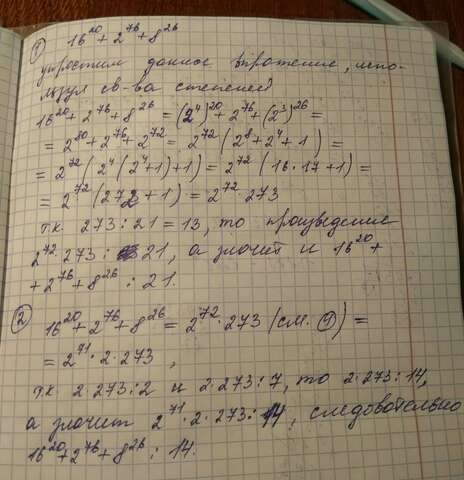 ① 16^20 + 2^76 + 8^26
упростим данное выражение, испо-
льзуя св-ва степеней
16^20 + 2^76 + 8^26 = (2^4)^20 + 2^76 + (2^3)^26 =
= 2^80 + 2^76 + 2^72 = 2^72 (2^8 + 2^4 + 1) =
= 2^72 (2^4 (2^4 + 1) + 1) = 2^72 (16 · 17 + 1) =
= 2^72 (272 + 1) = 2^72 · 273
т.к. 273 : 21 = 13, то произведение
2^72 · 273 ⋮ 21, а значит и 16^20 +
+ 2^76 + 8^26 ⋮ 21.
② 16^20 + 2^76 + 8^26 = 2^72 · 273 (см. ①) =
= 2^71 · 2 · 273,
т.к. 2·273 ⋮ 2 и 2·273 ⋮ 7, то 2·273 ⋮ 14,
а значит 2^71 · 2 · 273 ⋮ 14, следовательно
16^20 + 2^76 + 8^26 ⋮ 14.